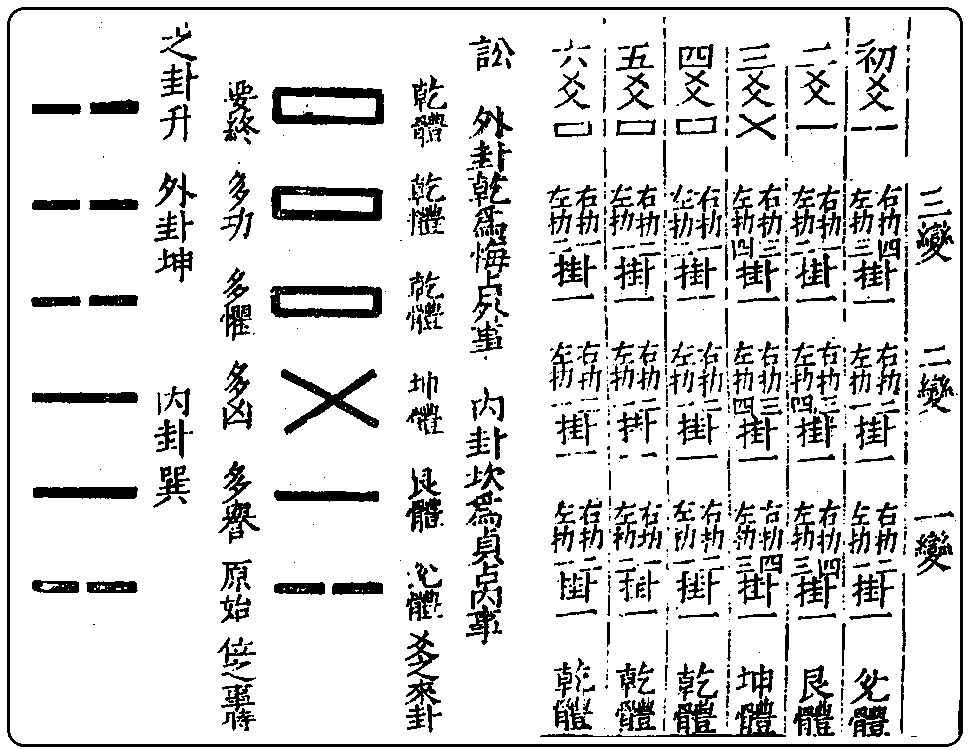 三變
二變
一變
初爻
右扐四
左扐三
掛一
右扐二
左扐一
掛一
右扐二
左扐一
掛一
兌體
二爻
右扐一
左扐二
掛一
右扐三
左扐四
掛一
右扐四
左扐三
掛一
艮體
三爻
右扐三
左扐四
掛一
右扐三
左扐四
掛一
右扐四
左扐三
掛一
坤體
四爻
右扐一
左扐二
掛一
右扐二
左扐一
掛一
右扐二
左扐一
掛一
乾體
五爻
右扐一
左扐二
掛一
右扐二
左扐一
掛一
右扐一
左扐二
掛一
乾體
六爻
右扐一
左扐二
掛一
右扐二
左扐一
掛一
右扐二
左扐一
掛一
乾體
訟 外卦乾為悔占外事 內卦坎為貞占內事
乾體 乾體 乾體 坤體 艮體 兌體 爻之來卦
要終 多功 多懼 多凶 多譽 原始 之事時
之卦升 外卦坤 內卦巽